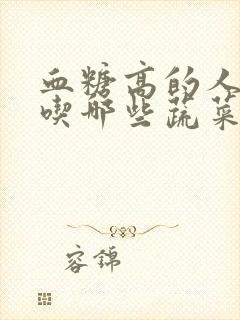 血糖高的人
喫哪些蔬菜
容錦